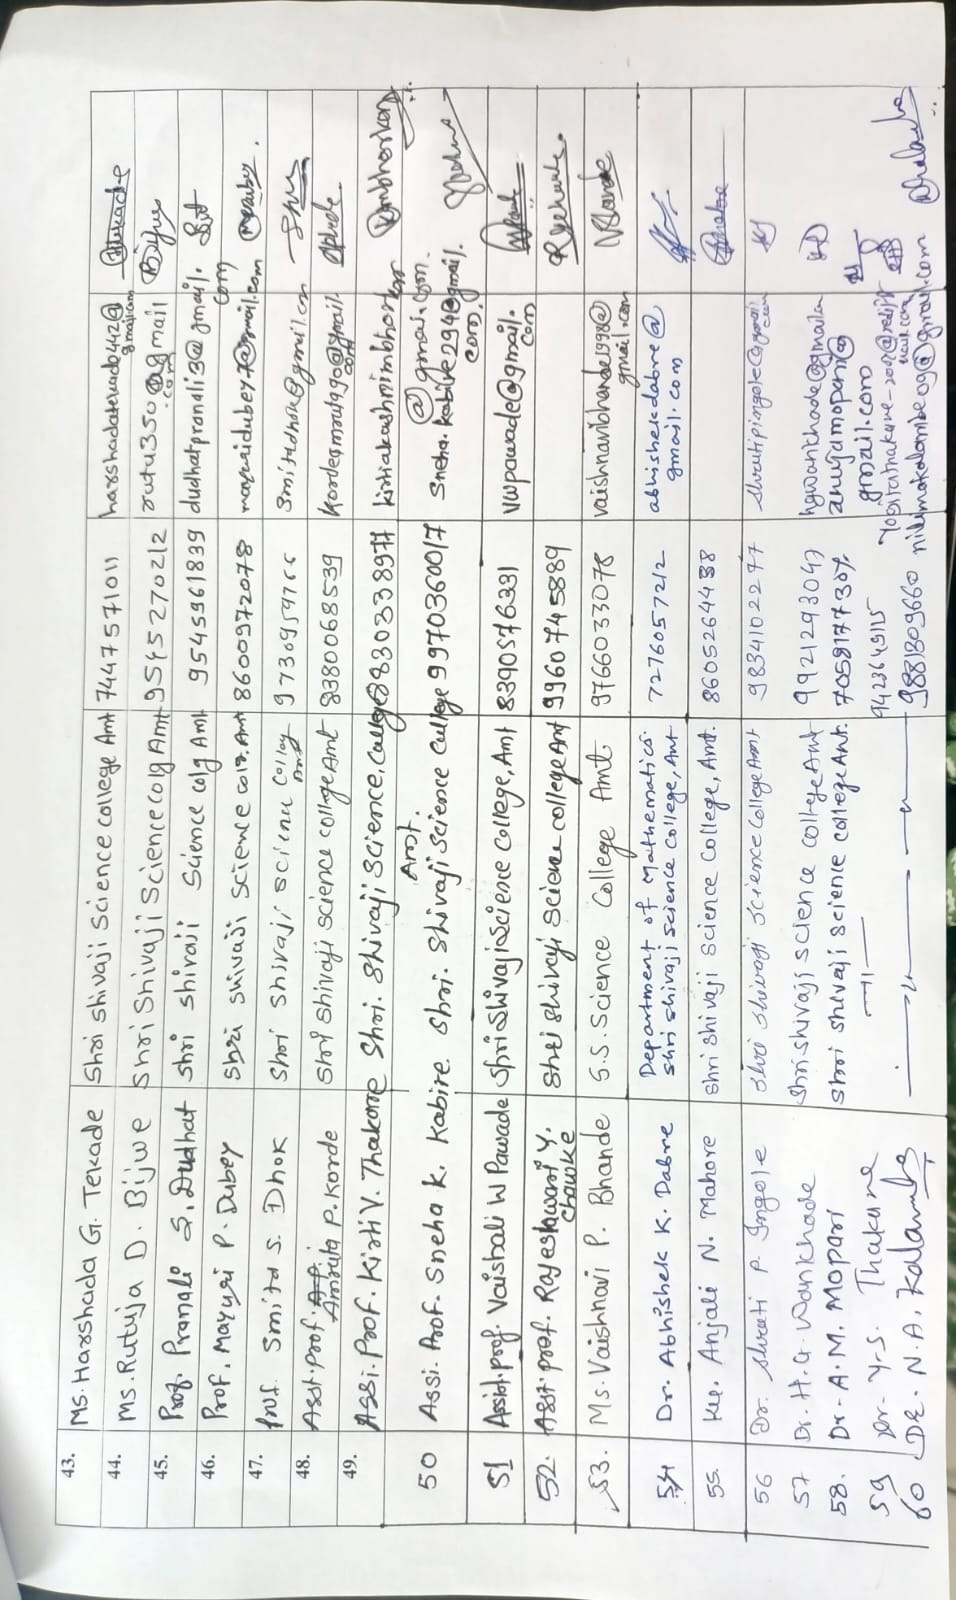 43. Ms. Harshada G. Tekade Shri Shivaji Science college Amt 7447571011
44. Ms. Rutuja D. Bijwe Shri Shivaji Science colg Amt 9545270212
45. Prof. Pranali S. Dudhat Shri Shivaji Science colg Amt. 9545961839 dudhatpranali3@gmail.com
46. Prof. Mayuri P. Dubey Shri Shivaji Science colg. Amt 8600972078
47. Prof. Smita S. Dhok Shri Shivaji Science Colleg Amt smitadhok@gmail.com
48. Asst. prof. Amruta P. Korde Shri Shivaji science college Amt 8380068539
49. Assi. Prof. Kirti V. Thakare Shri. Shivaji Science, College Amt. 8830338977
50 Assi. Prof. Sneha K. Kabire. Shri. Shivaji Science College 9970360017 Sneha.kabire294@gmail.com.
51 Assist. prof. Vaishali W Pawade Shri Shivaji Science College, Amt 8390576331 vwpawade@gmail.com
52. Asst. prof. Rajeshwari Y. Chauke Shri Shivaji Science college Amt 9960745889
53. Ms. Vaishnavi P. Bhande S.S. Science College Amt 9766033078 vaishnavibhande1998@gmail.com
54 Dr. Abhishek K. Dabre Department of Mathematics Shri shivaji science college, Amt 7276057212 abhishekdabre@gmail.com
55. Ku. Anjali N. Mahore Shri Shivaji Science College, Amt. 8605264438
56 Dr. Shruti P. Ingole Shri Shivaji Science College Amt 9834102277 shrutipingole@gmail.com
57 Dr. H. G. Wankhade Shri shivaji science college Amt 9921293047
58. Dr. A. M. Mopari Shri shivaji science college Amt. anujamopari@gmail.com
59 Dr. Y. S. Thakare —11— 9423649115
60 Dr. N. A. Kalambe —"— 9881809660 nilimakalambe09@gmail.com